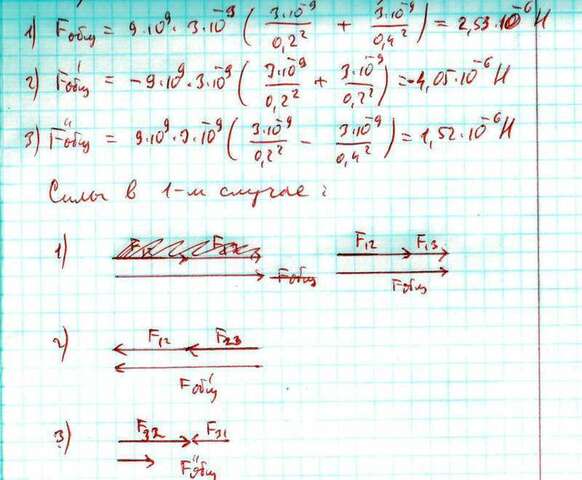 1) Fобщ = 9·10⁹·3·10⁻⁹ ( 3·10⁻⁹/0,2² + 3·10⁻⁹/0,4² ) = 2,53·10⁻⁶ Н
2) F'общ = −9·10⁹·3·10⁻⁹ ( 3·10⁻⁹/0,2² + 3·10⁻⁹/0,2² ) = −4,05·10⁻⁶ Н
3) F''общ = 9·10⁹·3·10⁻⁹ ( 3·10⁻⁹/0,2² − 3·10⁻⁹/0,4² ) = 1,52·10⁻⁶ Н
Силы в 1-м случае:
1) Fобщ F12 F13 Fобщ
2) F12 F23
F'общ
3) F32 F31
F''общ